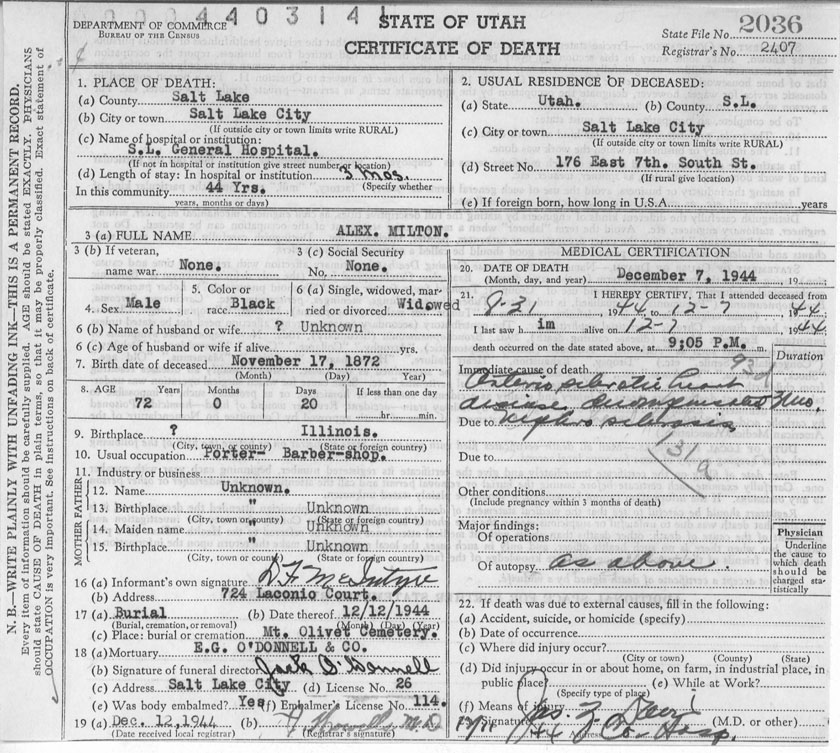 4403141
DEPARTMENT OF COMMERCE
BUREAU OF THE CENSUS
STATE OF UTAH
CERTIFICATE OF DEATH
State File No. 2036
Registrar's No. 2407
N. B.—WRITE PLAINLY WITH UNFADING INK—THIS IS A PERMANENT RECORD.
Every item of information should be carefully supplied. AGE should be stated EXACTLY. PHYSICIANS
should state CAUSE OF DEATH in plain terms, so that it may be properly classified. Exact statement of
OCCUPATION is very important. See instructions on back of certificate.
1. PLACE OF DEATH:
(a) County Salt Lake
(b) City or town Salt Lake City
(If outside city or town limits write RURAL)
(c) Name of hospital or institution:
S.L. General Hospital.
(If not in hospital or institution give street number or location)
(d) Length of stay: In hospital or institution 3 mos.
(Specify whether
In this community 44 Yrs.
years, months or days)
2. USUAL RESIDENCE OF DECEASED:
(a) State Utah. (b) County S.L.
(c) City or town Salt Lake City
(If outside city or town limits write RURAL)
(d) Street No. 176 East 7th. South St.
(If rural give location)
(e) If foreign born, how long in U.S.A. years
3 (a) FULL NAME ALEX. MILTON.
3 (b) If veteran,
name war None.
3 (c) Social Security
No. None.
4. Sex Male
5. Color or
race Black
6 (a) Single, widowed, mar-
ried or divorced Widowed
6 (b) Name of husband or wife ? Unknown
6 (c) Age of husband or wife if alive yrs.
7. Birth date of deceased November 17, 1872
(Month) (Day) Year)
8. AGE Years Months Days If less than one day
72 0 20 hr. min.
9. Birthplace ? Illinois.
(City, town, or county) (State or foreign country)
10. Usual occupation Porter- Barber-shop.
11. Industry or business
MOTHER FATHER
12. Name Unknown.
13. Birthplace " Unknown
(City, town or county) (State or foreign country)
14. Maiden name " Unknown
15. Birthplace " Unknown
(City, town or county) (State or foreign country)
16 (a) Informant's own signature D F McIntyre
(b) Address 724 Laconio Court.
17 (a) Burial (b) Date thereof 12/12/1944
(Burial, cremation, or removal) (Month) (Day) (Year)
(c) Place: burial or cremation Mt. Olivet Cemetery.
18 (a) Mortuary E.G. O'DONNELL & CO.
(b) Signature of funeral director Jack O'Donnell
(c) Address Salt Lake City (d) License No. 26
(e) Was body embalmed? Yes (f) Embalmer's License No. 114.
19 (a) Dec. 12, 1944 (b) M.D.
(Date received local registrar) (Registrar's signature)
MEDICAL CERTIFICATION
20. DATE OF DEATH
(Month, day, and year) December 7, 1944 19
21. I HEREBY CERTIFY, That I attended deceased from
8-31 1944 to 12-7 1944
I last saw h im alive on 12-7 1944
death occurred on the date stated above, at 9;05 P.M. m.
Duration
Immediate cause of death 93d
Arterio sclerotic heart
disease, decompensated 3 mos.
Due to Nephro sclerosis
131a
Due to
Other conditions
(Include pregnancy within 3 months of death)
Major findings:
Of operations
Of autopsy as above.
Physician
Underline
the cause to
which death
should be
charged sta-
tistically
22. If death was due to external causes, fill in the following:
(a) Accident, suicide, or homicide (specify)
(b) Date of occurrence
(c) Where did injury occur?
(City or town) (County) (State)
(d) Did injury occur in or about home, on farm, in industrial place, in
public place? (e) While at Work?
(Specify type of place)
(f) Means of injury
Signature Jas. Z. (M.D. or other)
12/11 44 Co. Hosp.